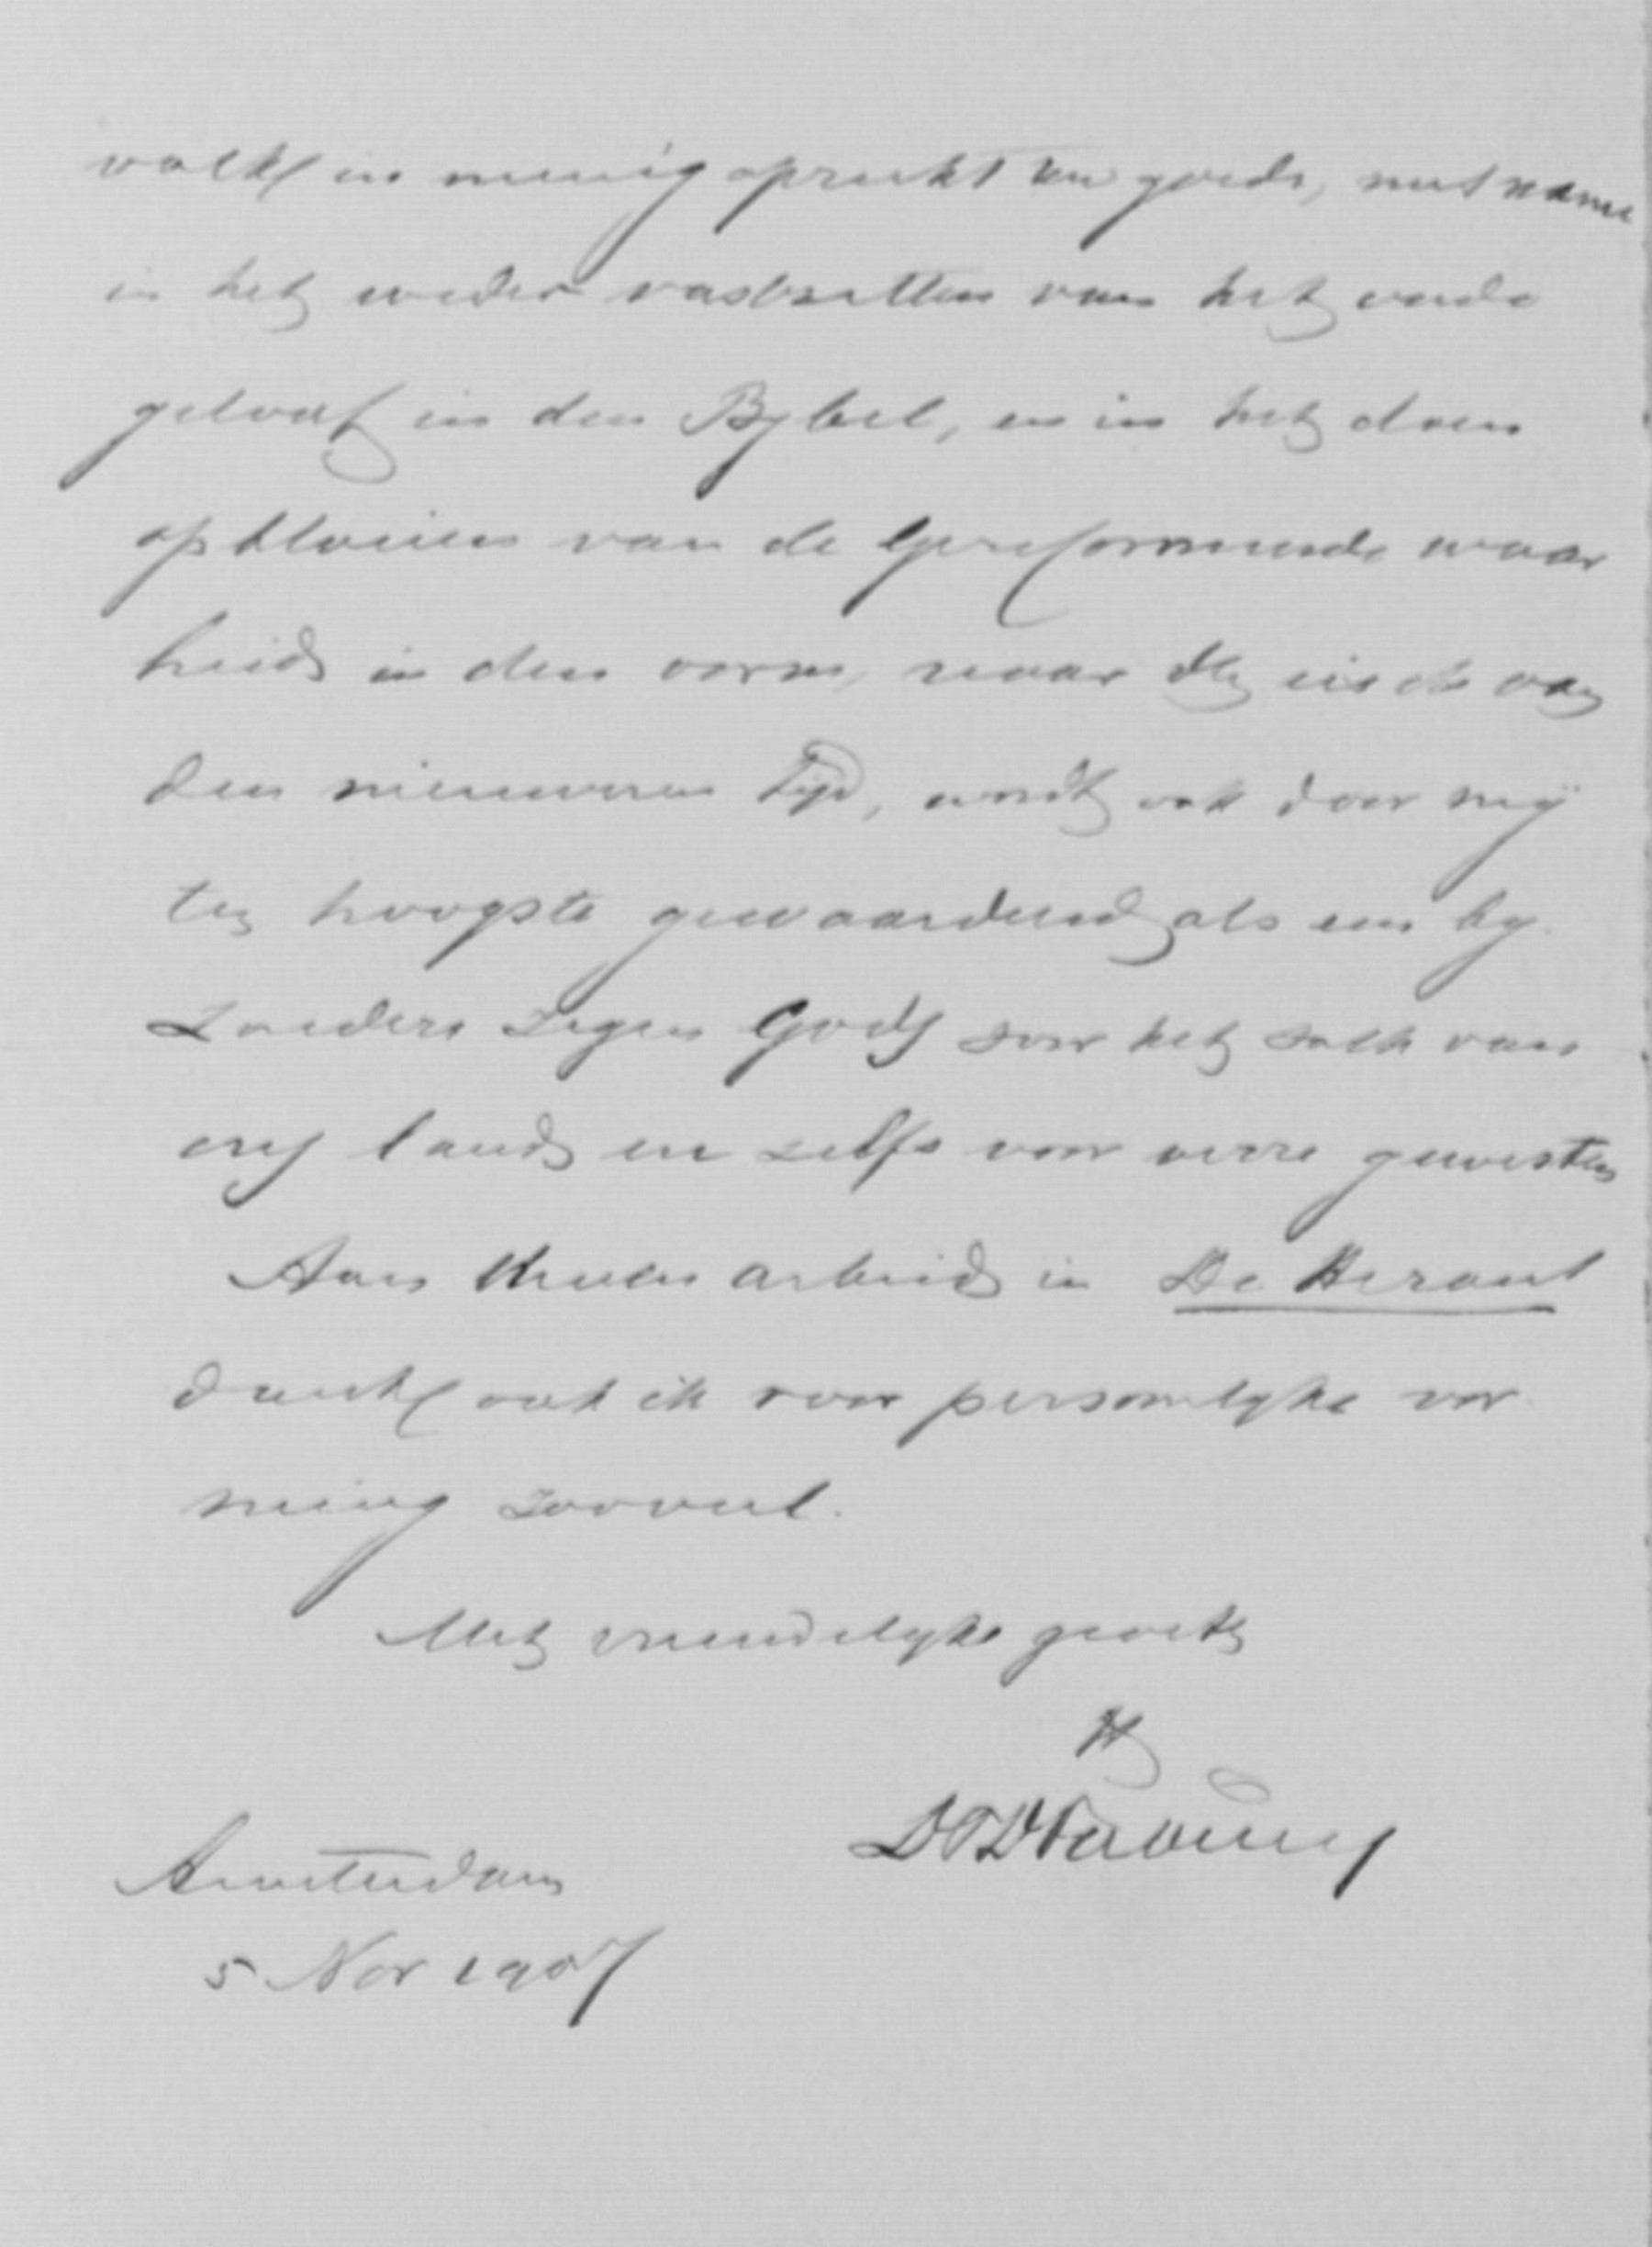 volk in menig opzicht ten goede, met name
in het weder vastzetten van het oude
geloof in den Bijbel, en in het doen
opbloeien van de Gereformeerde waar
heid in den vorm, naar den eisch van
den nieuweren tijd, wordt ook door mij
ten hoogste gewaardeerd als een bij
zondere zegen Gods voor het volk van
ons land en zelfs voor verre gewesten
Aan Uwen arbeid in De Heraut
dank ook ik voor persoonlijke vor
ming zooveel.
Met vriendelijke groete
Amsterdam
5 Nov 1907